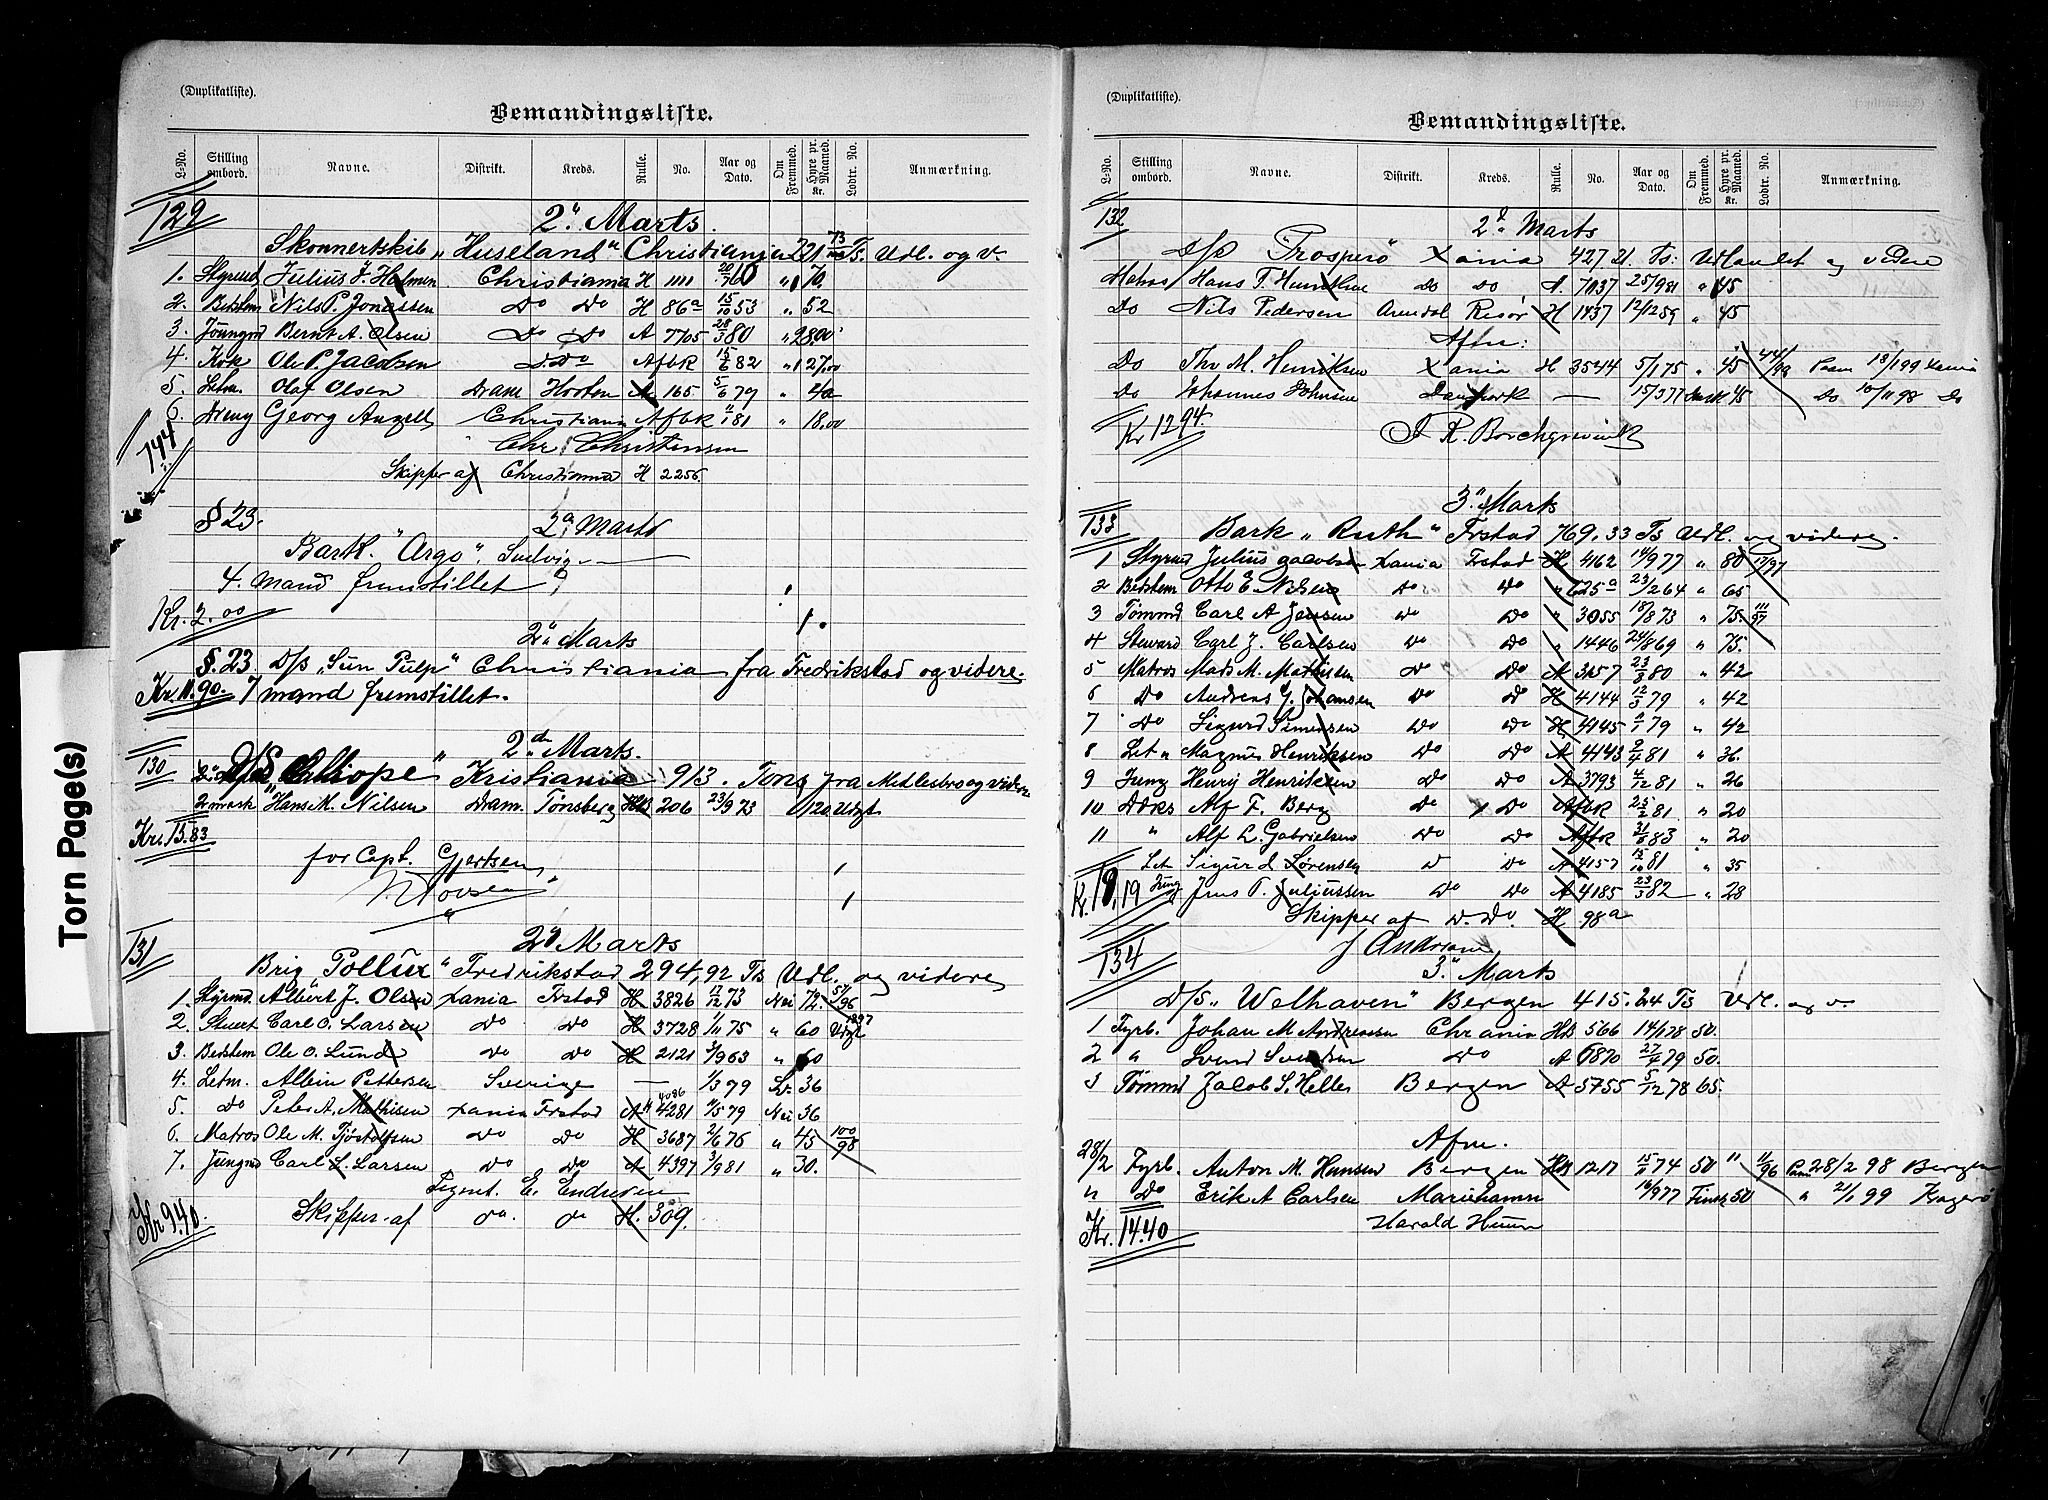 Torn Page(s)
(Duplikatliste).
Bemandingsliste.
L-No. Stilling ombord. Navne. Distrikt. Kreds. Rulle. No. Aar og Dato. Om Fremmed. Hyre pr. Maaned. Kr. Lodtr. No. Anmærkning.
129 2' Marts.
Skonnertskib "Huseland" Christiania 221 73/100 Ts. Udl. og v.
1. Julius J. Holmen Christiania H 1111 70.
2. Bedstem Nils P. Jonassen Do Do H 86a 15/10 53 " 52
3. Bernt A. Olsen Do Do A 7705 28/3 80 " 28.00
4. Kok Ole P. Jacobsen Do Do Afbk 15/6 82 " 27.00
5. Letm. Olaf Olsen Dram Horten A 165 5/6 79 "
6. Dreng Georg Angell Christiania Afbk "/1 81 " 18.00
144
Chr Christensen
Skipper af Christiania H 2256.
§ 23. 2a Marts
Bark. "Argo".
4. Mand fremstillet
Kr. 2.00
2" Marts
§. 23. D/s "Sun Pulp" Christiania fra Fredrikstad og videre.
Kr. 11.90. 7 mand fremstillet.
130 2den Marts.
D/S Calliope" Kristiania 913. Tons fra Middlesbro og videre
Hans M. Nilsen Dram. Tønsberg 206 23/9 73 120
Kr. 15.83
for Capt. Gjertsen
131 2' Marts
Brig "Pollux" Fredrikstad 294,92 Ts Udl. og videre
1. Styrmd. Albert J. Olsen Xania Frstad H 3826 17/12 73 Nei 72. 57/96
2. Stuert Carl O. Larsen Do Do H 3728 1/11 75 " 60 1897
3. Bedstem Ole O. Lund Do Do H 2121 3/9 63 " 60
4. Letm. Albin Pettersen Sverige — 1/3 79 36
5. Do Peter A. Mathisen Xania Frstad A 4281 11/5 79 Nei 36
6. Matros Ole M. Tjøstolfsen Do Do H 3687 2/6 76 " 45 100/98
7. Jungmd Carl L. Larsen Do Do A 4397 3/9 81 " 30.
Sigmt. E. Endresen
Kr 9.40. Skipper af do do H. 309.
(Duplikatliste).
Bemandingsliste.
L-No. Stilling ombord. Navne. Distrikt. Kreds. Rulle. No. Aar og Dato. Om Fremmed. Hyre pr. Maaned. Kr. Lodtr. No. Anmærkning.
132 2d Marts
D/S Prosperø Xania 427.21. Ts: Udlandet og videre
Matros Hans T. Henriksen Do Do A. 7037 25/9 81 " 45
Do Nils Pedersen Arendal Risør H 1437 12/12 59 " 45
Afm:
Do Thv M. Henriksen Xania H 3544 5/1 75 " 45 44/98 Paam 18/1 99 Xania
Do Johannes Johnsen Danmark — 15/3 77 Dansk 45 Do 10/11 98 Do
Kr 12.94. R. Borchgrevink
3" Marts
133 Bark "Ruth" Frstad 769,33 Ts Udl. og videre.
1 Styrmd Julius Jacobsen Xania Frstad H 4162 14/9 77 " 80
2 Bedstem Otto E Nilsen Do Do " 625a 23/2 64 " 65
3 Tømmd Carl A Jensen Do Do " 3055 18/8 73 " 75. 111/97
4 Steward Carl J. Carlsen Do Do " 1446 24/8 69 " 75.
5 Matros Mads M. Mathisen Do Do A 3157 23/3 80 " 42
6 Do Andreas J. Johansen Do Do H 4144 12/3 79 " 42
7 Do Sigurd Simensen Do Do H 4145 79 " 42
8 Let " Magnus Henriksen Do Do A 4143 2/4 81 " 36.
9 Jung Henry Henriksen Do Do A 3793 4/12 81 " 26
10 Dæks Alf F. Berg Do Do Afbk 23/2 81 " 20
11 " Alf L. Gabrielsen Do Do Afbk 31/8 83 " 20
Let Sigurd Sørensen Do Do A 4157 15/10 81 " 35
Kr. 18,19 Jung Jens P. Juliussen Do Do A 4185 23/3 82 " 28
Skipper af Do. Do. H 98a
134 3." Marts
D/s. "Welhaven" Bergen 415.24 Ts Udl. og v.
1 Fyrb. Johan M Andreassen Chrania 566 14/1 78 50.
2 " Svend Svendsen Do A 6870 27/4 79 50.
3 Tømmd Jacob S. Heller Bergen A 5755 5/12 78 65.
Afm.
28/2 Fyrb. Anton M. Hansen Bergen 1217 15/11 74 50 " 11/96 Paam 28/2 98 Bergen
" Do Erik A Carlsen Mariehamn 16/9 77 Finsk 50 " 21/1 99 Kragerø
Kr. 14.40 Harald Huun